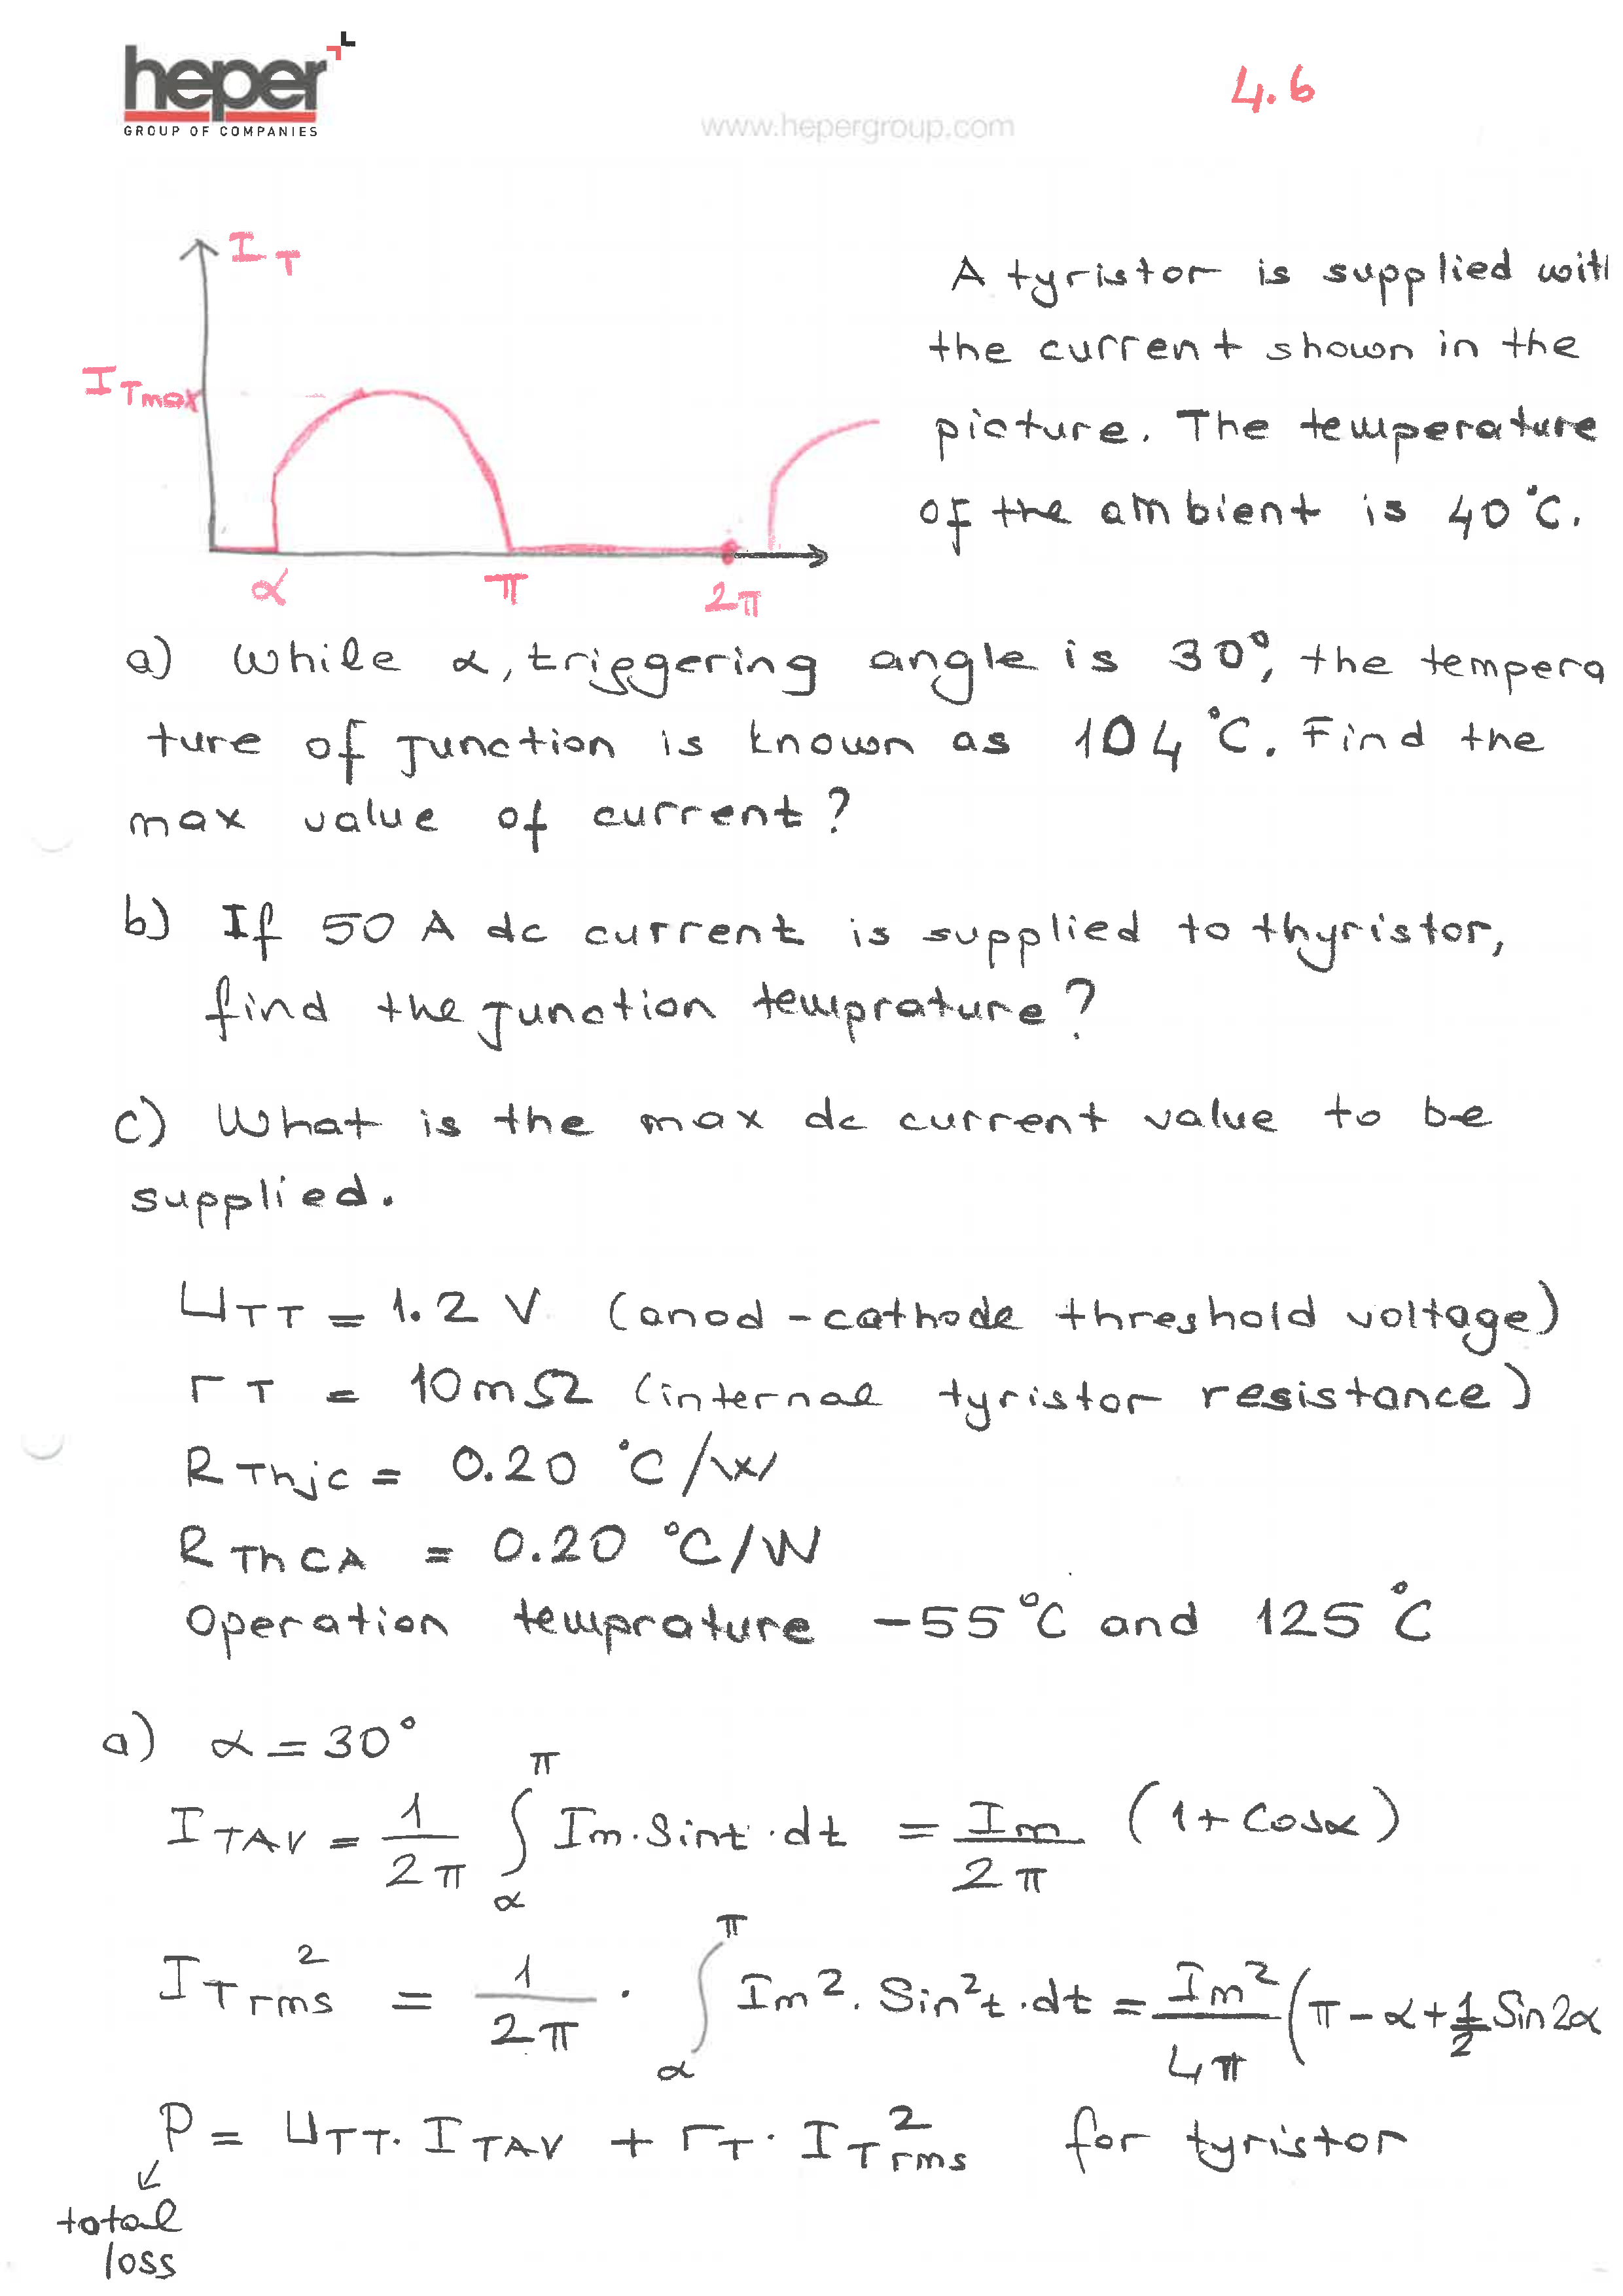 heper
GROUP OF COMPANIES
www.hepergroup.com
4.6
I T
I Tmax
α
π
2π
A tyristor is supplied wit
the current shown in the
picture. The temperature
of the ambient is 40°C.
a) While α, triggering angle is 30°, the tempera
ture of junction is known as 104 °C. Find the
max value of current?
b) If 50 A dc current is supplied to thyristor,
find the junction temprature?
c) What is the max dc current value to be
supplied.
UTT = 1.2 V (anod-cathode threshold voltage)
rT = 10mΩ (internal tyristor resistance)
RThjc = 0.20 °C/W
RThCA = 0.20 °C/W
Operation temprature -55°C and 125°C
a) α = 30°
ITAV = 1/2π ∫α^π Im.Sint.dt = Im/2π (1+Cosα)
ITrms² = 1/2π . ∫α^π Im². Sin²t.dt = Im²/4π (π-α+1/2 Sin2α
P = UTT. ITAV + rT. ITrms² for tyristor
total
loss